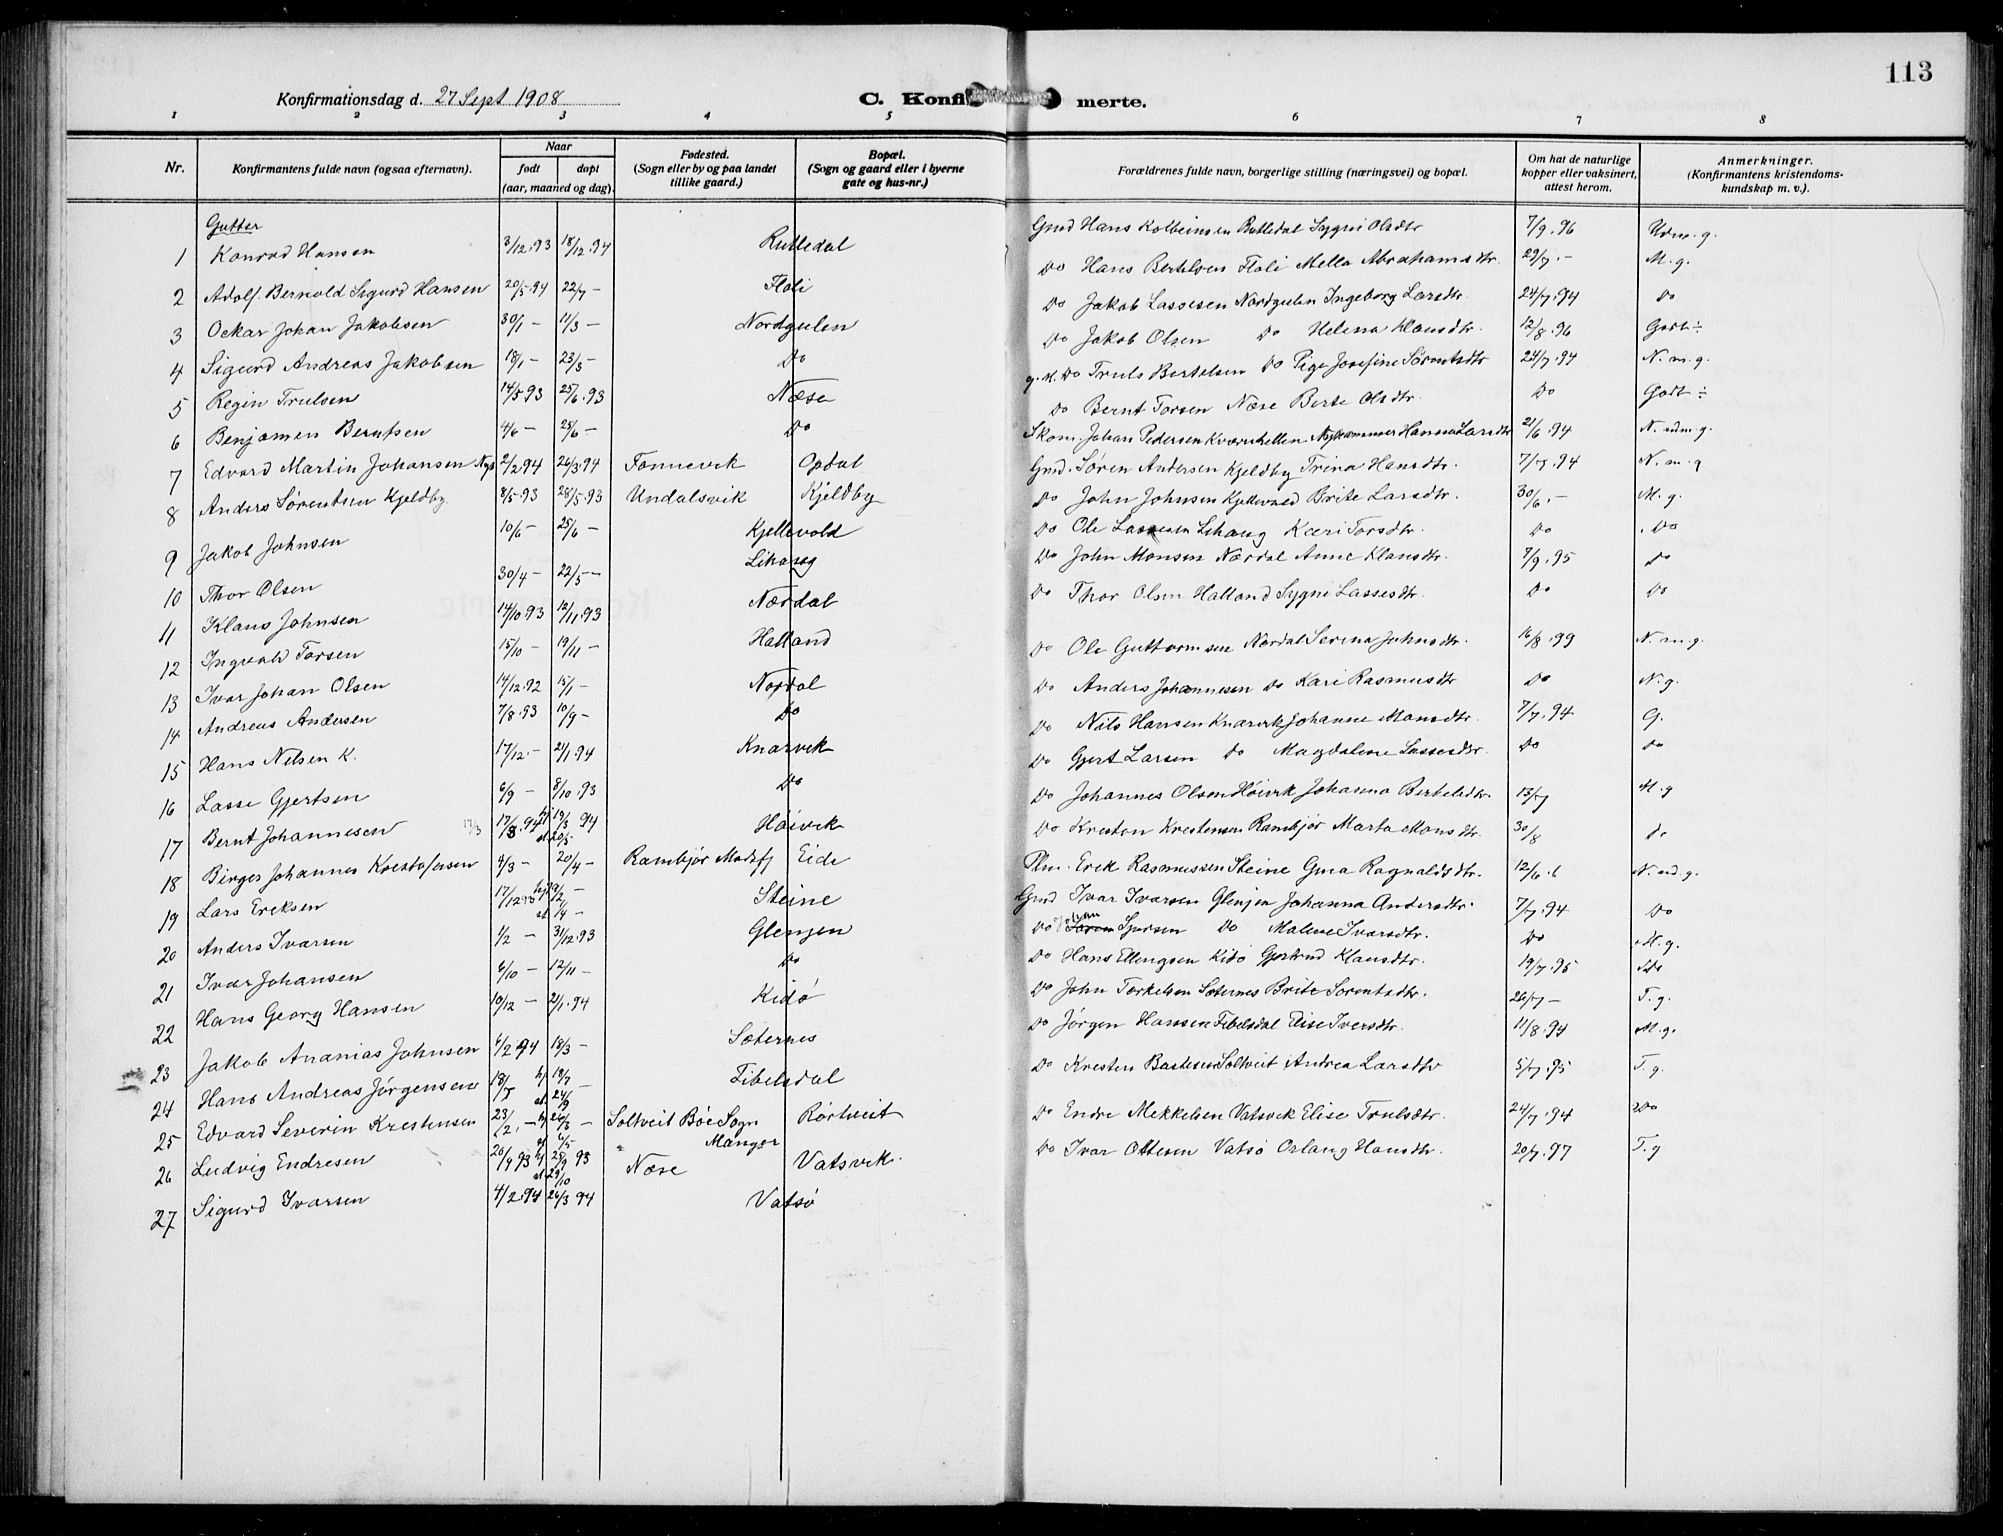 113
Konfirmationsdag d. 27 Sept 1908
C. Konfi merte.
1 2 3 4 5 6 7 8
Nr.
Konfirmantens fulde navn (ogsaa efternavn).
Naar
født døpt
(aar, maaned og dag).
Fødested.
(Sogn eller by og paa landet
tillike gaard.)
Bopæl.
(Sogn og gaard eller i byerne
gate og hus-nr.)
Forældrenes fulde navn, borgerlige stilling (næringsvei) og bopæl.
Om hat de naturlige
kopper eller vaksinert,
attest herom.
Anmerkninger.
(Konfirmantens kristendoms-
kundskap m. v.).
Gutter
1 Konrad Hansen 3/12.93 18/12.94 Rutledal Gmd Hans Kolbeinsen Rutledal Sygni Olsdtr 7/9.96 Udm. g.
2 Adolf Bernold Sigurd Hansen 20/5.94 22/7 — Floli Do Hans Bertelsen Floli Mella Abrahamsdtr. 29/7.— M. g.
3 Oskar Johan Jakobsen 30/1 — 11/3 — Nordgulen Do Jakob Lassesen Nordgulen Ingeborg Larsdtr. 24/7.94 Do
4 Sigurd Andreas Jakobsen 18/1 — 23/3 — Do Do Jakob Olsen Do Helena Klausdtr. 12/8.96 Godt ÷
5 Regin Trulsen 14/5.93 25/6.93 Næse g. M. Do Truls Bertelsen Do Pige Josefine Sørentsdtr 24/7.94 N. m. g.
6 Benjamen Berntsen 4/6 — 25/6 — Do Do Bernt Torsen Næse Berte Olsdtr. Do Godt ÷
7 Edvard Martin Johansen 2/2.94 26/3.94 Tonnevik Opdal Skom. Johan Pedersen Hanna Larsdtr 21/6.94 N. udm. g.
8 Anders Sørentsen Kjeldby 8/5.93 28/5.93 Undalsvik Kjeldby Gmd. Søren Andersen Kjeldby Trina Hansdtr. 7/7.94 N. m. g
9 Jakob Johnsen 10/6 — 25/6 — Kjellevold Do John Johnsen Kjellevold Brite Larsdtr. 30/6.— M. g.
10 Thor Olsen 30/4 — 22/5 — Lihaug Do Ole Lassesen Lihaug Kari Torsdtr. Do Do
11 Klaus Johnsen 14/10.93 12/11.93 Nærdal Do John Monsen Nærdal Anne Klausdtr. 7/9.95 Do
12 Ingvald Torsen 15/10 — 19/11 — Halland Do Thor Olsen Halland Sygni Lassesdtr. Do Do
13 Ivar Johan Olsen 14/12.92 15/1 — Nordal Do Ole Guttormsen Nordal Serina Johnsdtr. 16/8.99 N. m. g.
14 Andreas Andersen 7/8.93 10/9 — Do Do Anders Johannesen Do Kari Rasmusdtr Do N. g.
15 Hans Nilsen K. 17/12.— 21/1.94 Knarvik Do Nils Hansen Knarvik Johanne Monsdtr. 7/7.94 G.
16 Lasse Gjertsen 6/9 — 8/10.93 Do Do Gjert Larsen Do Magdalene Lassesdtr. Do Do
17 Bernt Johannesen 17/3 17/3.94 Høivik Do Johannes Olsen Høivik Johanna Bertelsdtr. 13/7 M. g
18 Birger Johannes Kristofersen 4/3 — 20/4 — Rambjør Eide Do Kristen Kristensen Rambjør Marta Monsdtr. 30/8 do
19 Lars Eriksen 17/12 Steine Plm. Erik Rasmussen Steine Gina Ragnaldsdtr. 12/6 N. ud. g.
20 Anders Ivarsen 1/2 — 31/12.93 Glenjen Gmd Ivar Ivarsen Glenjen Johanna Andersdtr. 7/7.94 Do
21 Ivar Johansen 6/10 — 12/11 — Do Do Johan Do Malene Ivarsdtr. Do M. g.
22 Hans Georg Hansen 10/12 — 21/1.94 Kidø Do Hans Ellingsen Kidø Gjertrud Klausdtr. 19/7.95 Do
23 Jakob Ananias Johnsen 6/2 94 18/3 — Sæternes Do John Torkelsen Sæternes Brite Sørentsdtr. 26/7 — T. g.
24 Hans Andreas Jørgensen 18/5 Fibelsdal Do Jørgen Hansen Fibelsdal Elise Iversdtr. 11/8.94 M. g.
25 Edvard Severin Kristensen 23/2.— Soltveit Bøe Sogn Manger Rørtveit Do Kristen Soltveit Andrea Larsdtr 5/7.95 T. g.
26 Ludvig Endresen 20/9 93 Næse Vatsvik. Do Endre Mikkelsen Vatsvik Elise Trulsdtr. 24/7.94 Do
27 Sigurd Ivarsen 4/2.94 26/3 94 Vatsø Do Ivar Ottesen Vatsø Orlaug Hansdtr. 20/7.97 T. g